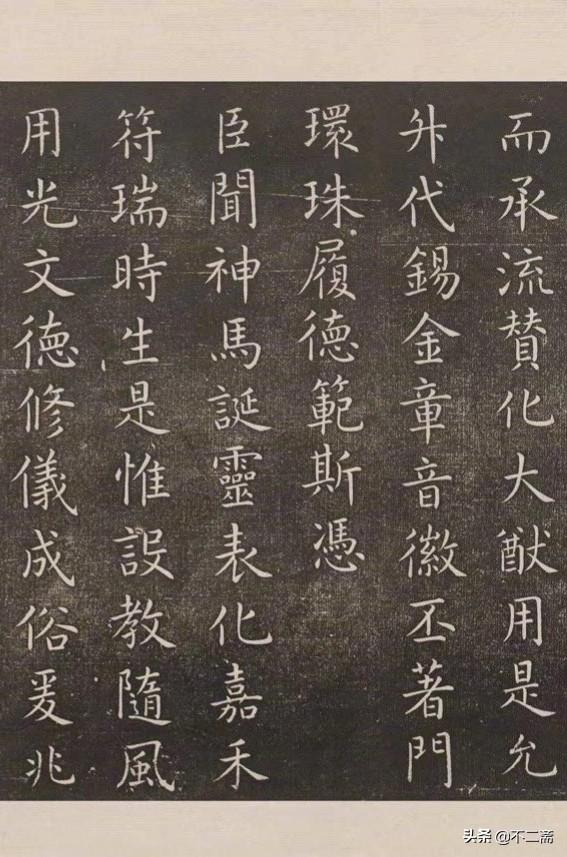 而承流賛化大猷用是允
升代錫金章音徽丕著門
環珠履德範斯憑
臣聞神馬誕靈表化嘉禾
符瑞時生是惟設教隨風
用光文德修儀成俗爰兆
头条 @不二斋